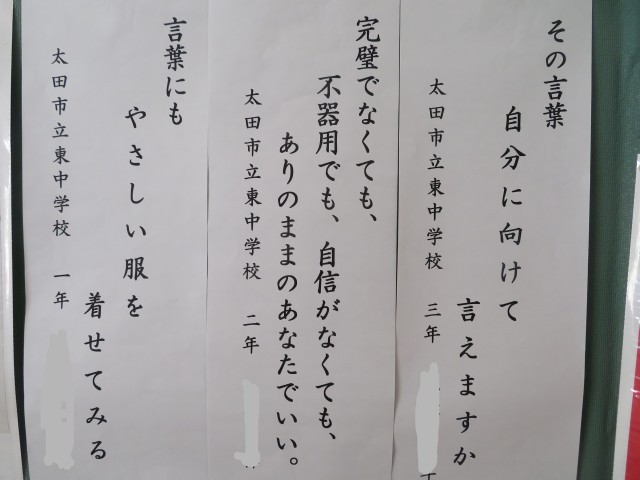 その言葉
自分に向けて
言えますか
太田市立東中学校 三年
完璧でなくても、
不器用でも、自信がなくても、
ありのままのあなたでいい。
太田市立東中学校 二年
言葉にも
やさしい服を
着せてみる
太田市立東中学校 一年